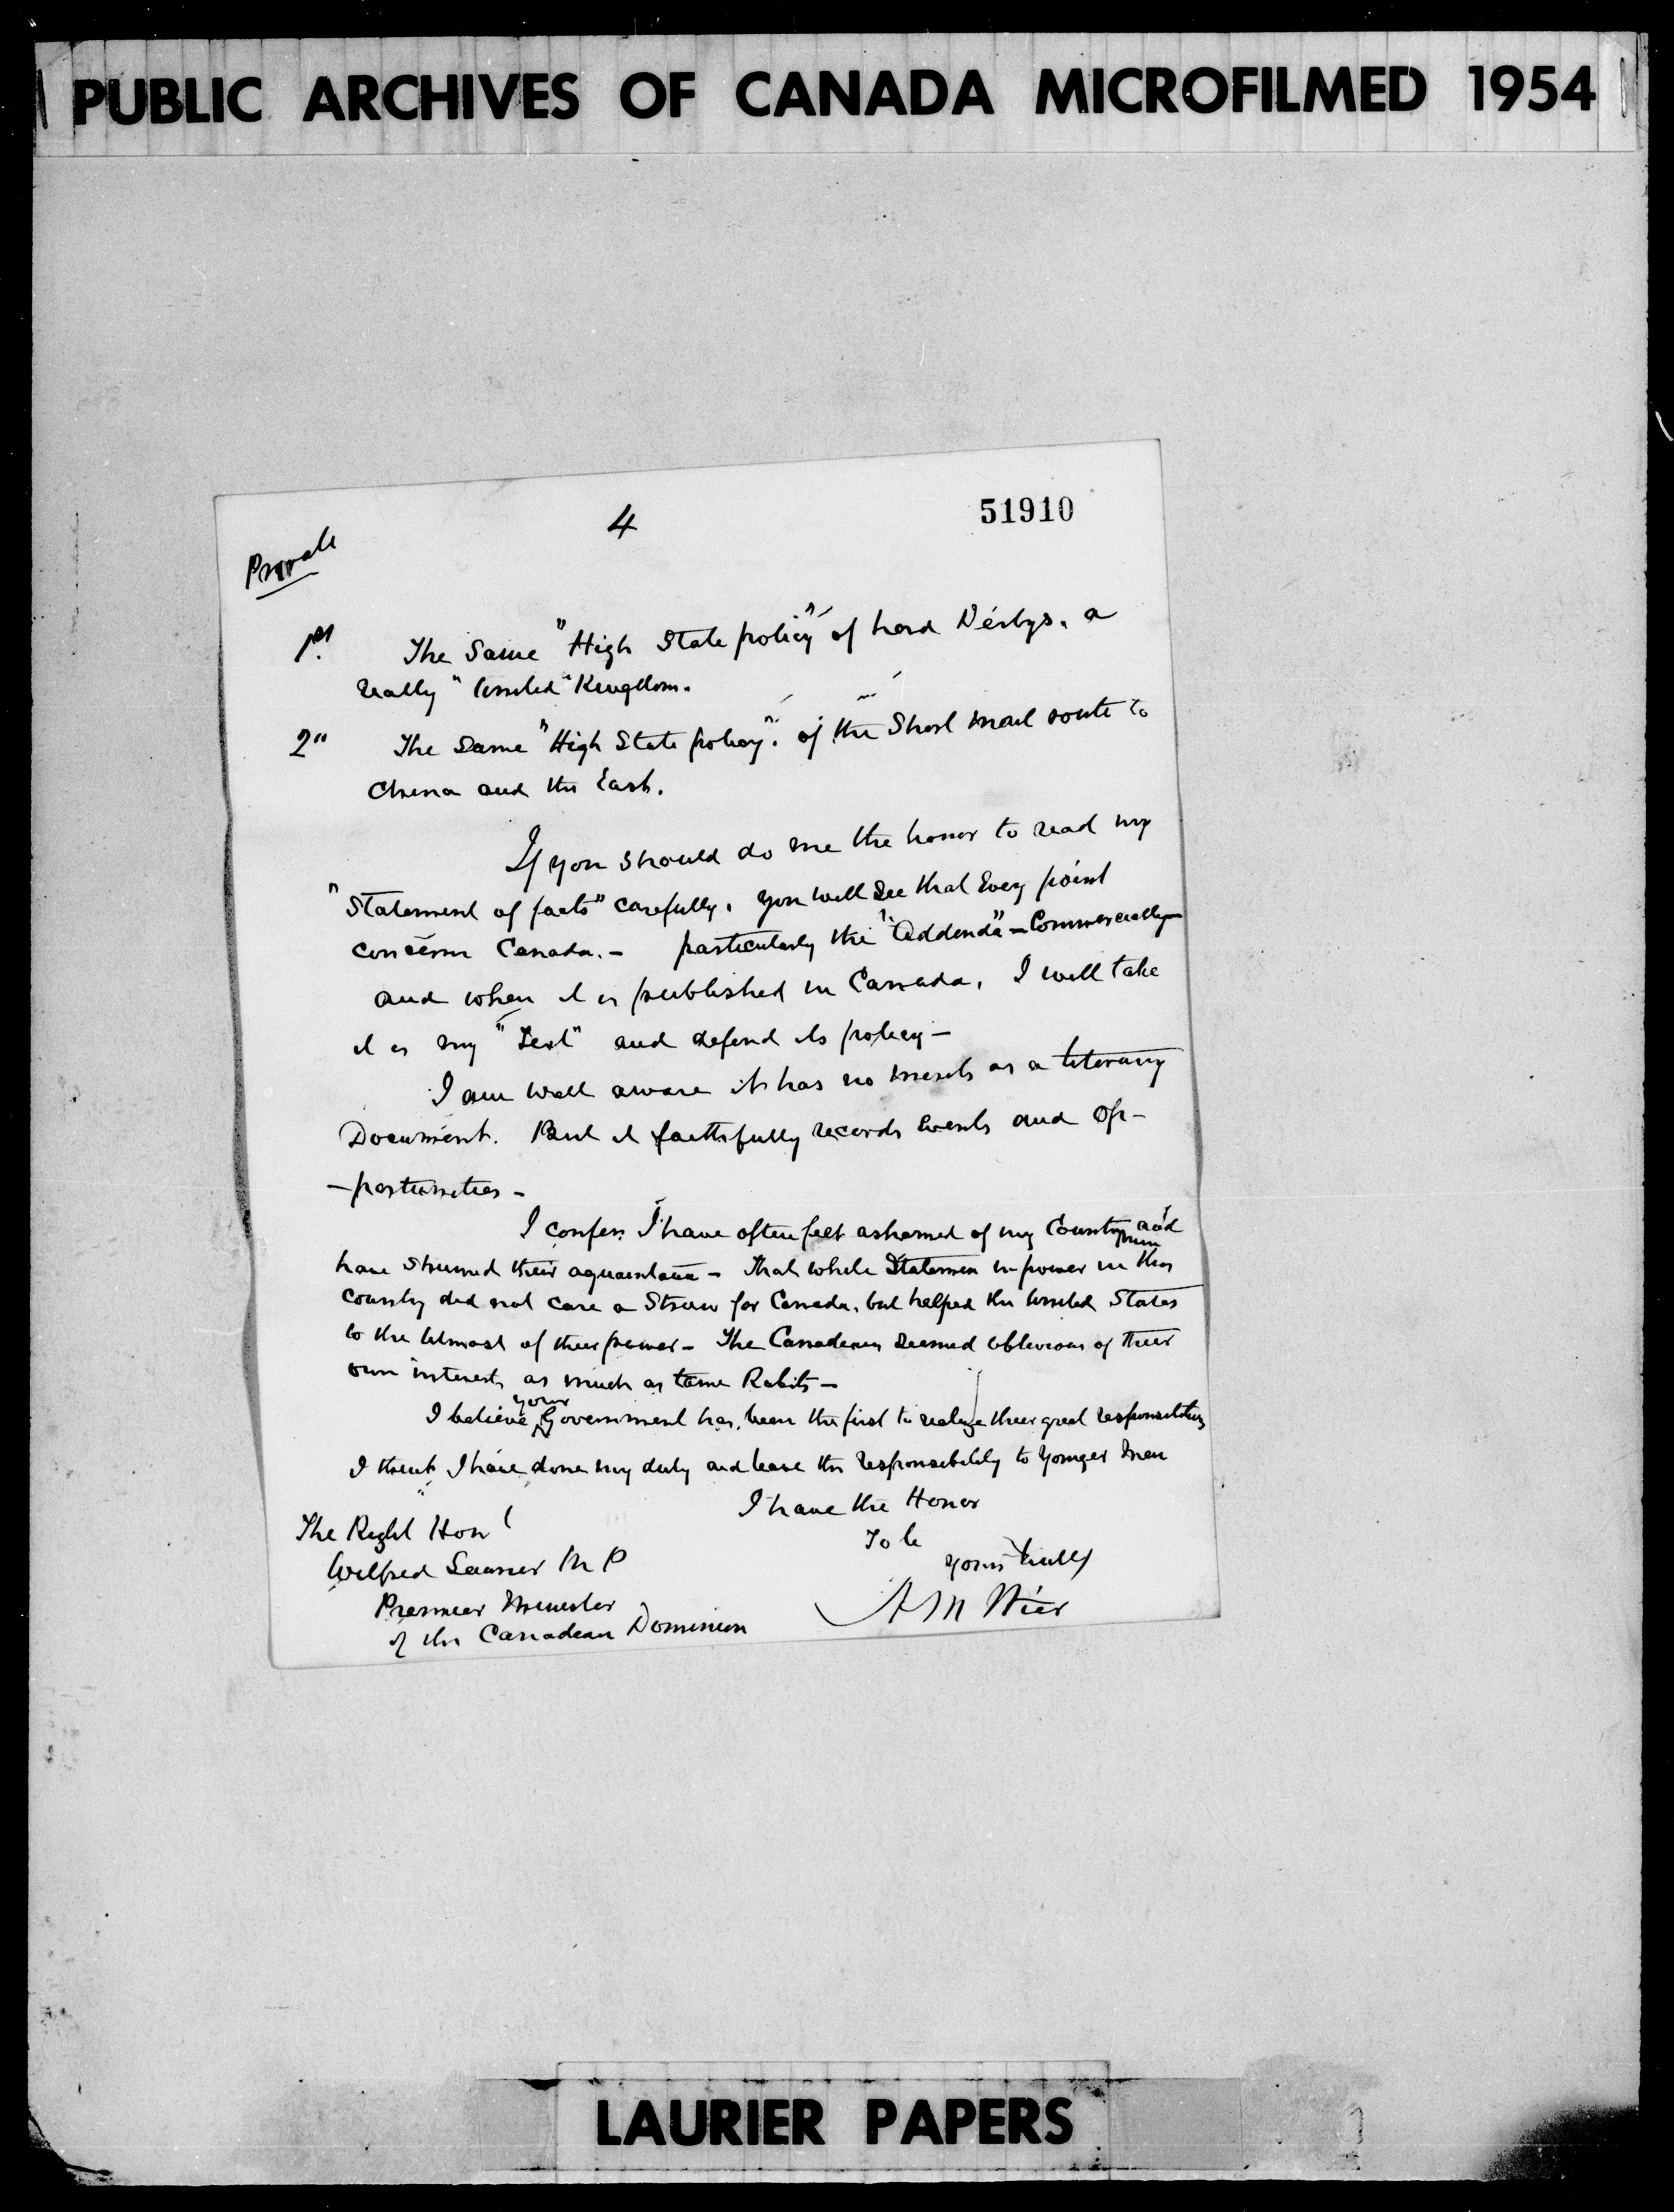 PUBLIC ARCHIVES OF CANADA MICROFILMED 1954
4
51910
Private
1st The Same "High State policy" of Lord Derbys. a
really "United" Kingdom.
2" The Same "High State policy". of the Short mail route to
China and the East.
If you should do me the honor to read my
"Statement of facts" carefully, you will see that Every point
concern Canada. - particularly the "Addenda" - Commercially -
and when it is published in Canada, I will take
it as my "Text" and defend its policy -
I am well aware it has no merits as a literary
Document. But it faithfully records Events and Op-
-portunities -
I confess I have often felt ashamed of my Countrymen and
have shunned their aquaintance - That while Statesmen in power in this
country did not care a Straw for Canada, but helped the United States
to the Utmost of their power - The Canadians seemed oblivious of their
own interests as much as tame Rabits -
I believe your Government has been the first to realize their great responsibilities
I think I have done my duty and leave the responsibility to Younger Men
I have the Honor
To be
Yours truly
A M Weir
The Right Honl
Wilfred Laurier M P
Premier Minister
of the Canadian Dominion
LAURIER PAPERS